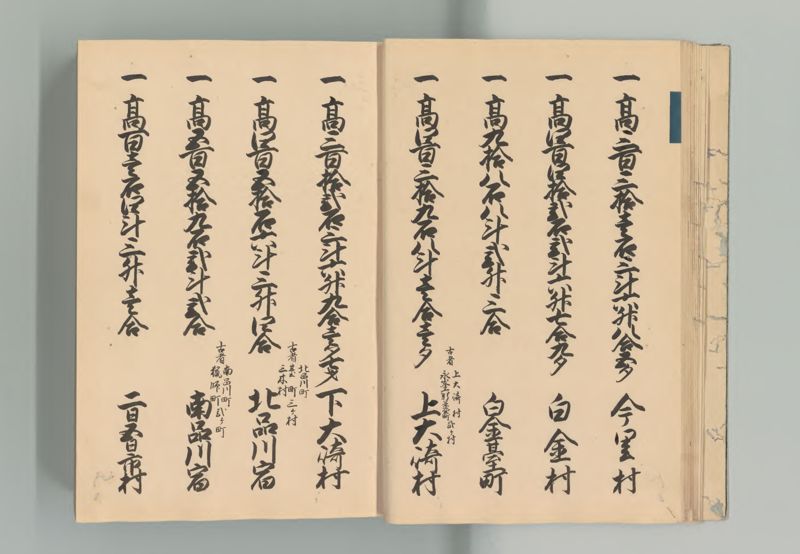 一 高三百三拾壱石三斗六升八合五夕 今里村
一 高四百四拾弐石弐斗六升七合九夕 白金村
一 高九拾八石八斗弐升三合 白金台町
一 高四百三拾九石八斗壱合壱夕 上大崎村
古者 上大崎村
村
一 高三百拾弐石三斗六升九合壱夕 下大崎村
一 高四百五拾石六斗三升四合 北品川宿
古者 北品川町
町 三ヶ村
三木村
一 高五百五拾九石弐斗弐合 南品川宿
古者 南品川町
猟師町 弐ヶ町
一 高百壱石四斗三升壱合 二日五日市村